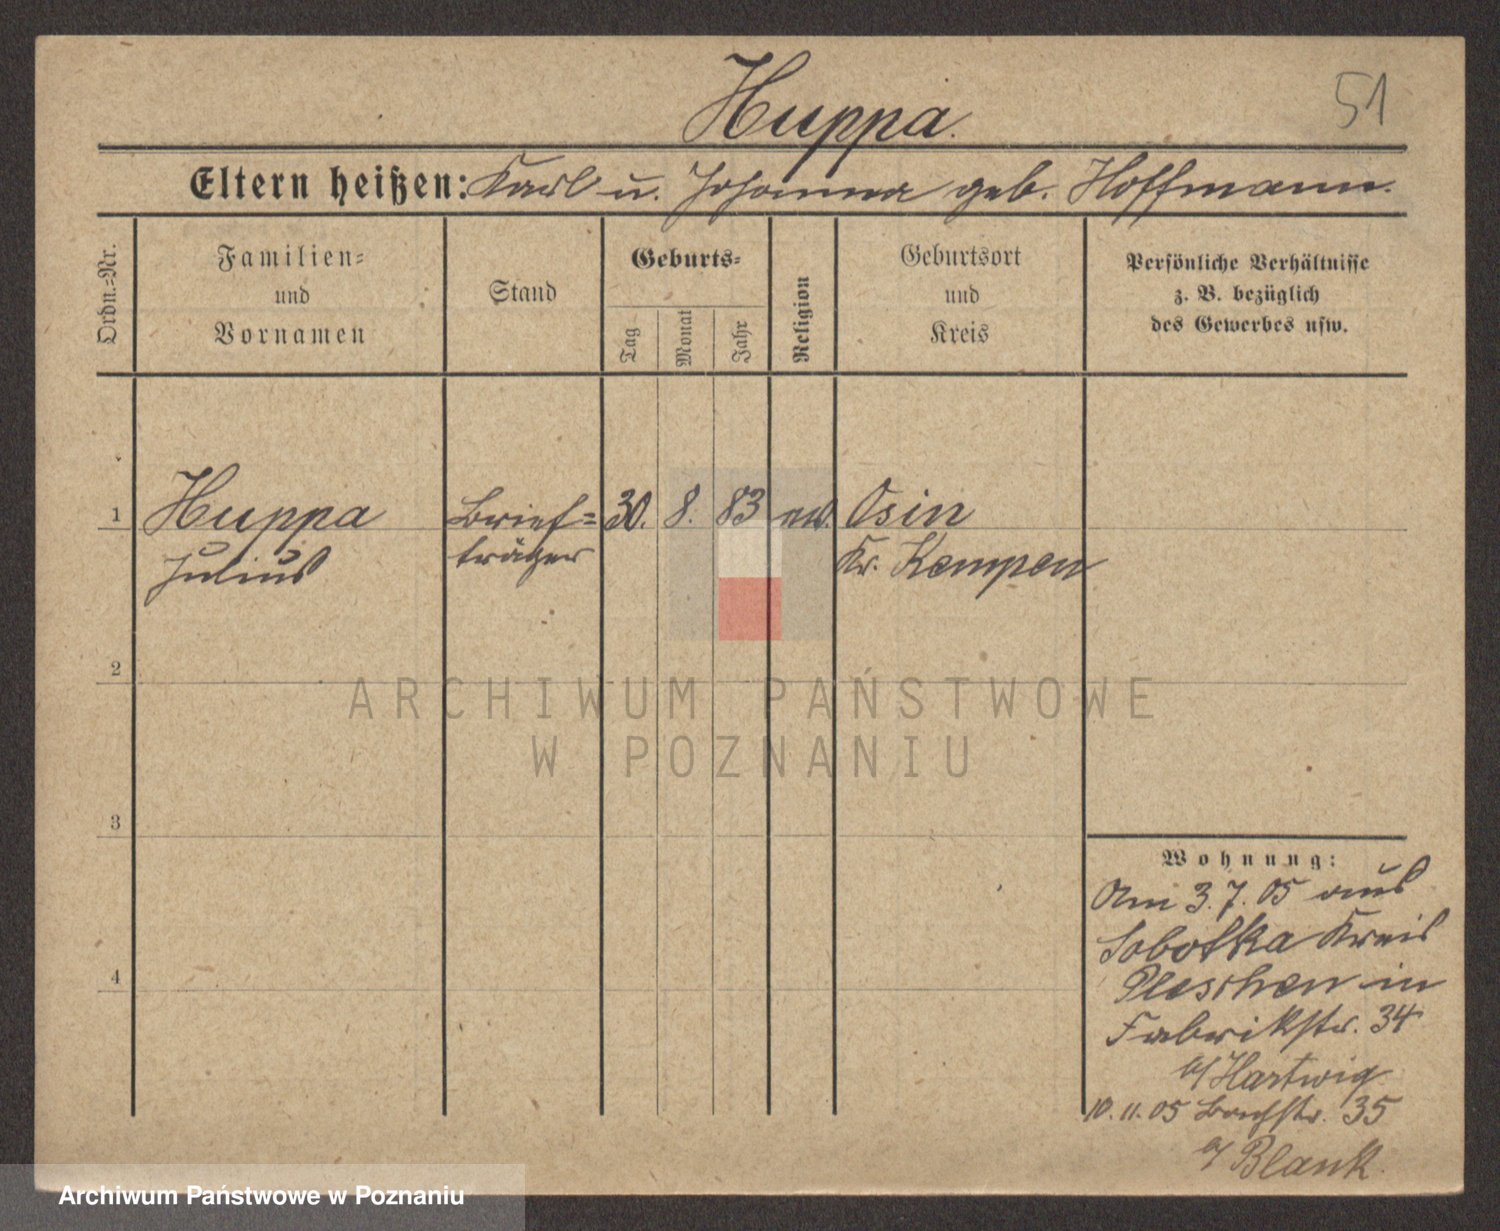 Huppa.
51
Eltern heißen: Karl u. Johanna geb. Hoffmann.
Ordn.-Nr.
Familien-
und
Vornamen
Stand
Geburts-
Tag
Monat
Jahr
Religion
Geburtsort
und
Kreis
Persönliche Verhältnisse
z. B. bezüglich
des Gewerbes usw.
1 Huppa Brief= 30. 8. 83 ev. Osin
Julius träger Kr. Kempen
2
3
4
Wohnung:
Am 3.7.05 aus
Sobotka Kreis
Pleschen in
Fabrikstr. 34
b/ Hartwig
10.11.05 Bachstr. 35
b/ Blank.
ARCHIWUM PAŃSTWOWE
W POZNANIU
Archiwum Państwowe w Poznaniu